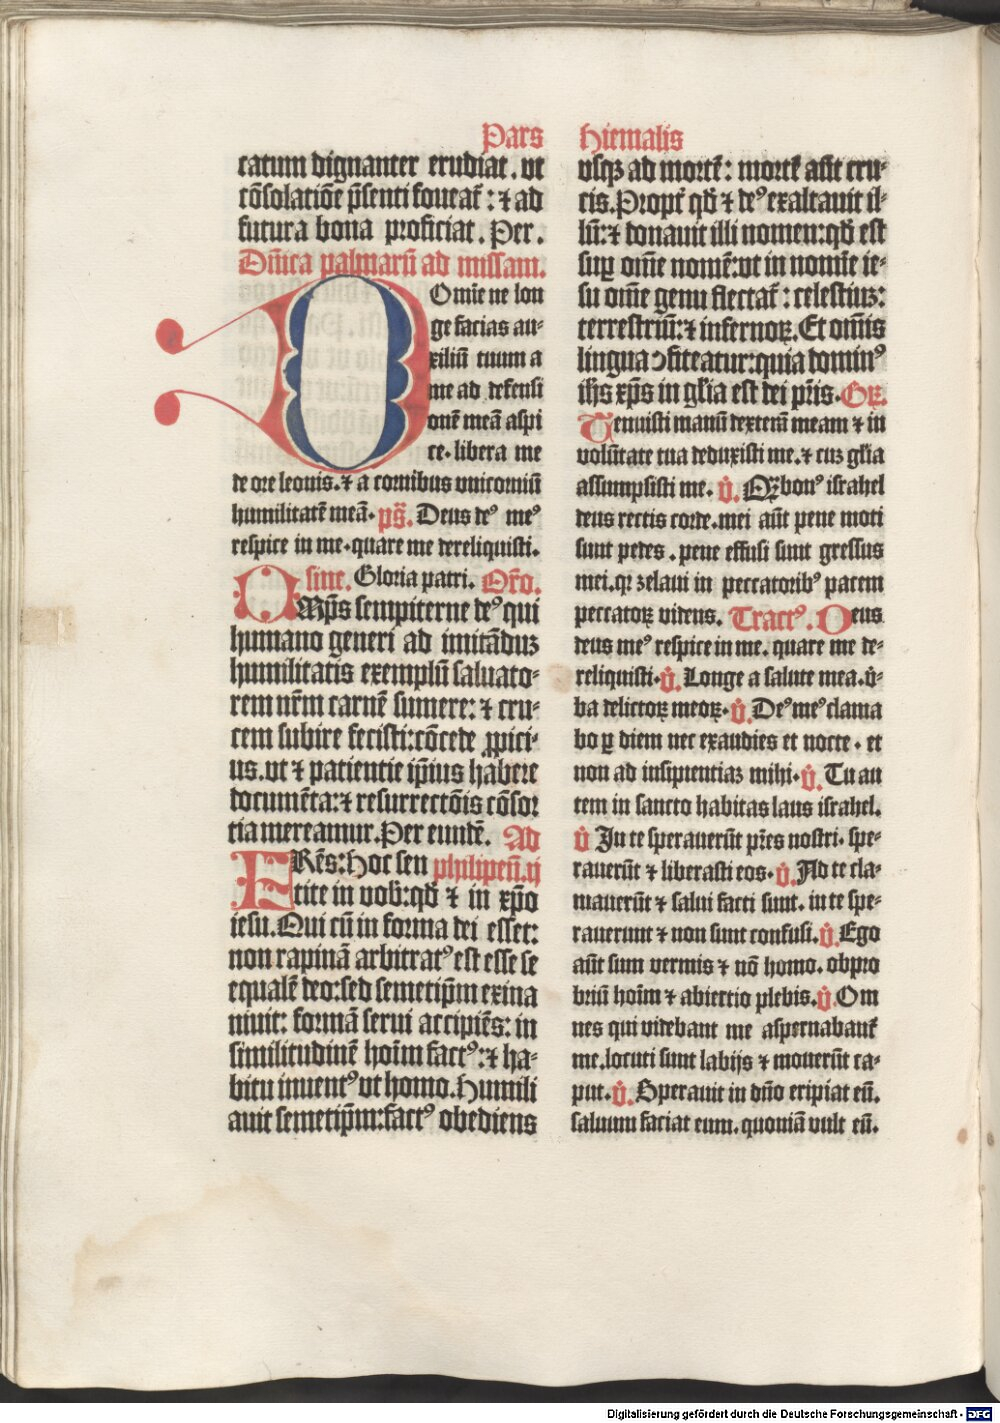 Pars
catum dignanter erudiat. vt
cōsolatiōe p̄senti foueat᷑: ⁊ ad
futura bona proficiat. Per.
Dn̄ica palmarū ad missam.
DOmīe ne lon
ge facias au-
xiliū tuum a
me ad defensi
onē meā aspi
ce. libera me
de ore leonis. ⁊ a cornibus vnicorniū
humilitatē meā. ps̄. Deus deꝰ meꝰ
respice in me. quare me dereliquisti.
sine. Gloria patri. Or̄o.
OMp̄s sempiterne deꝰ qui
humano generi ad imitāduꝫ
humilitatis exemplū saluato-
rem nr̄m carnē sumere: ⁊ cru-
cem subire fecisti: cōcede ꝓpici-
us. vt ⁊ patientie ip̄ius habere
documēta: ⁊ resurrectōis cōsor
tia mereamur. Per eundē. Ad
FRēs: Hoc sen philipeñ. ij
tite in vob: qd̄ ⁊ in xp̄o
iesu. Qui cū in forma dei esset:
non rapinā arbitratꝰ est esse se
equalē deo: sed semetip̄m exina
niuit: formā serui accipiēs: in
similitudinē hoīm factꝰ: ⁊ ha-
bitu inuentꝰ vt homo. Humili
auit semetip̄m: factꝰ obediens
Hiemalis
vsqꝫ ad mortē: mortē aūt cru-
cis. Propt᷑ qd̄ ⁊ deꝰ exaltauit il-
lū: ⁊ donauit illi nomen: qd̄ est
suꝑ om̄e nomē: vt in nomīe ie-
su om̄e genu flectat᷑: celestiuꝫ:
terrestriū: ⁊ infernoꝝ. Et om̄is
lingua ↄfiteatur: quia dominꝰ
ih̄s xp̄s in gl̄ia est dei p̄ris. Gꝝ.
Tenuisti manū dexterā meam ⁊ in
volūtate tua deduxisti me. ⁊ cuꝫ gl̄ia
assumpsisti me. v̇. Qꝫ bonꝰ israhel
deus rectis corde. mei aūt pene moti
sunt pedes. pene effusi sunt gressus
mei. qꝛ zelaui in peccatoribꝰ pacem
peccatoꝝ videns. Tractꝰ. Deus
deus meꝰ respice in me. quare me de-
reliquisti. v̇. Longe a salute mea. v̇-
ba delictoꝝ meoꝝ. v̇. Deꝰ meꝰ clama
bo ꝑ diem nec exaudies et nocte. et
non ad insipientiaꝫ mihi. v̇. Tu au
tem in sancto habitas laus israhel.
v̇ In te sperauerūt p̄res nostri. spe-
rauerūt ⁊ liberasti eos. v̇. Ad te cla-
mauerūt ⁊ salui facti sunt. in te spe-
rauerunt ⁊ non sunt confusi. v̇. Ego
aūt sum vermis ⁊ nō homo. obpro
briū hoīm ⁊ abiectio plebis. v̇. Om
nes qui videbant me aspernabant᷑
me. locuti sunt labijs ⁊ mouerūt ca-
put. v̇. Sperauit in dn̄o eripiat eū.
saluum faciat eum. quoniā vult eū.
Digitalisierung gefördert durch die Deutsche Forschungsgemeinschaft - DFG